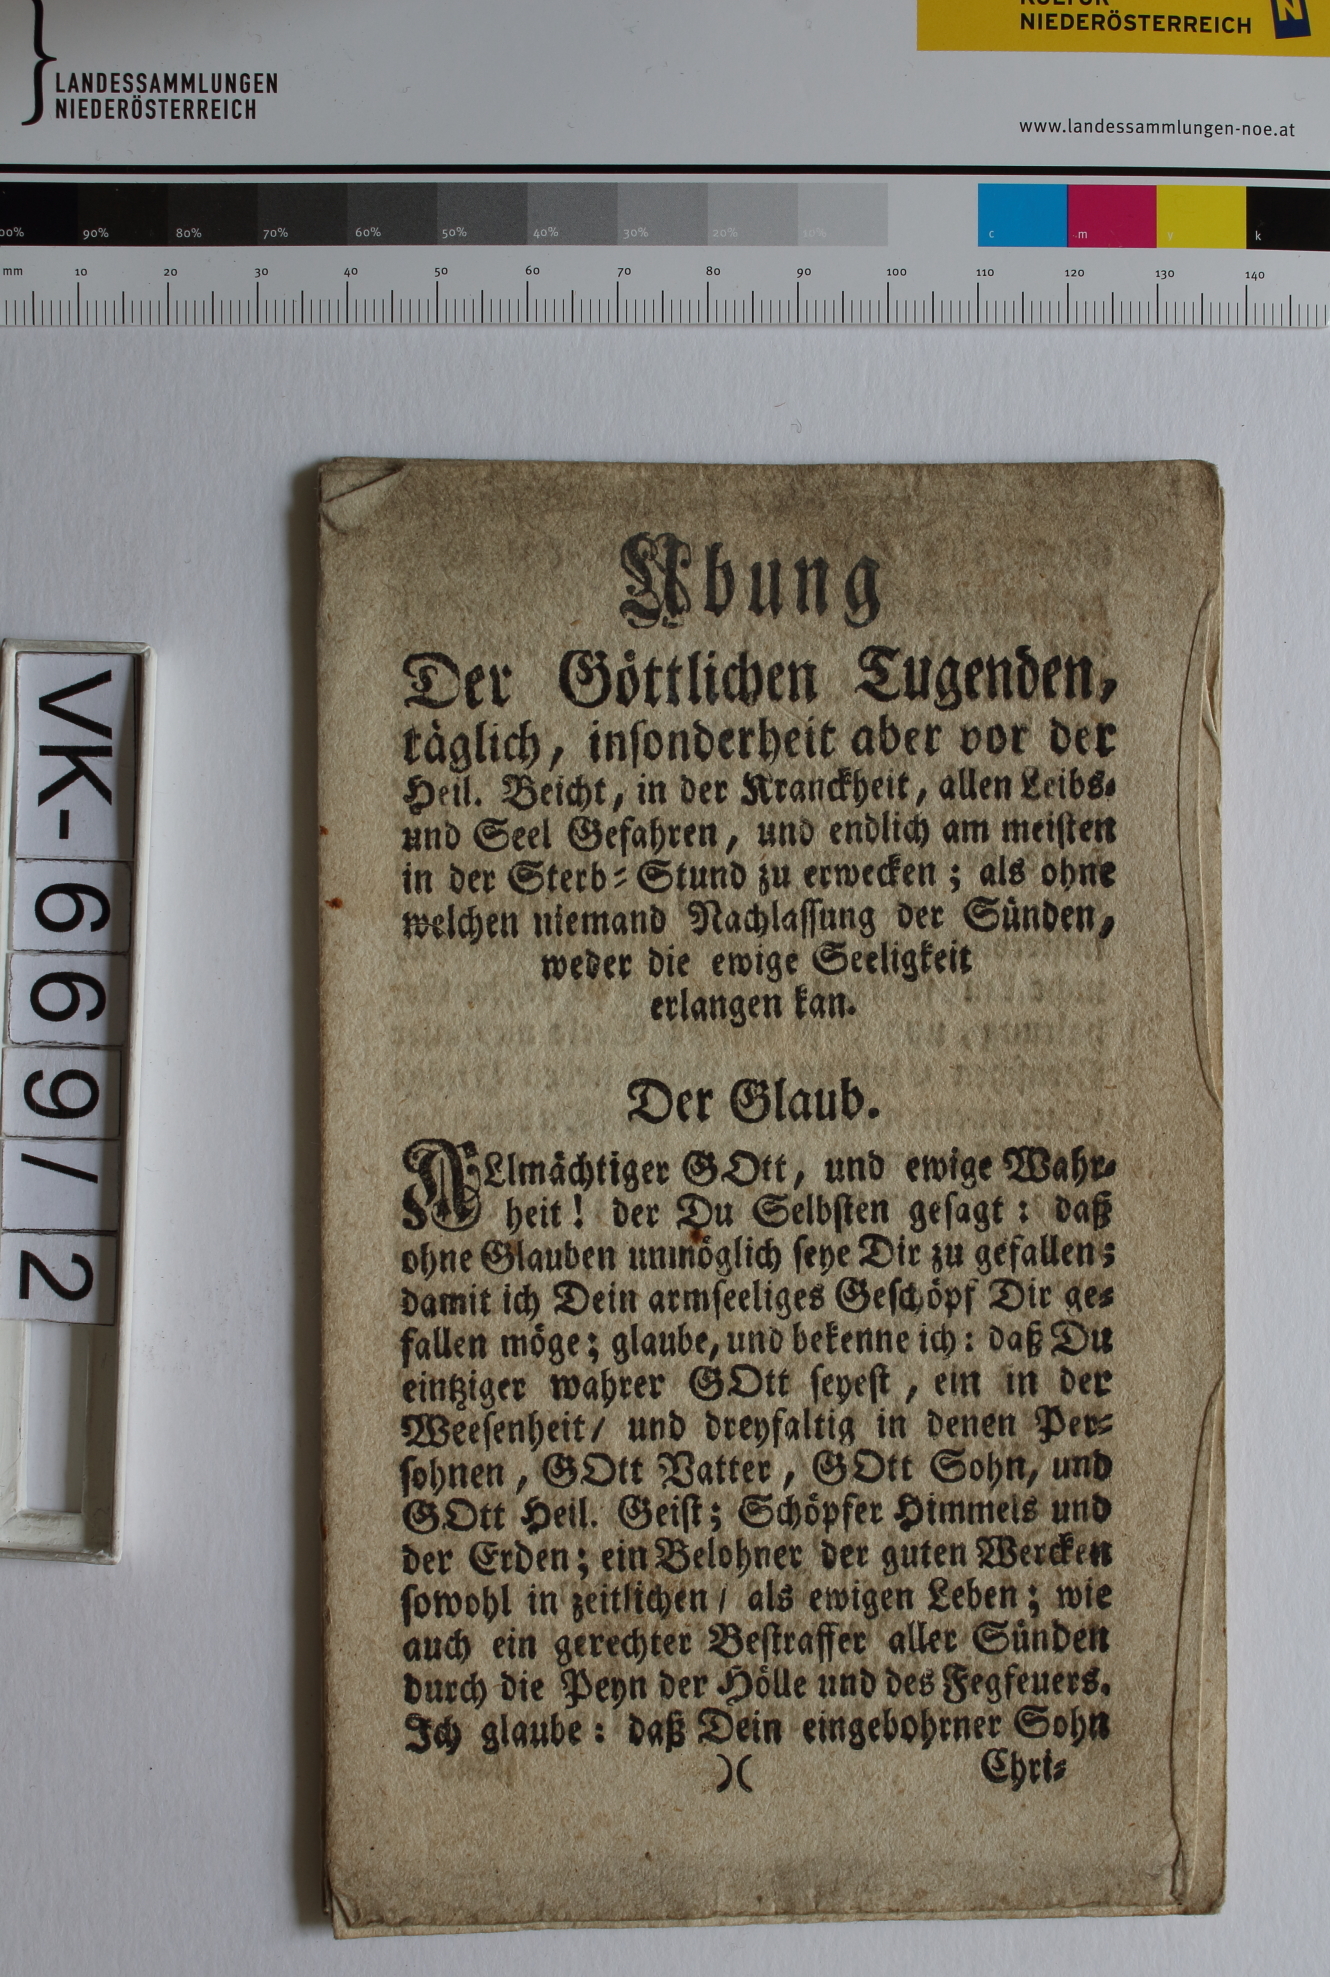 KULTUR
NIEDERÖSTERREICH
N
LANDESSAMMLUNGEN
NIEDERÖSTERREICH
www.landessammlungen-noe.at
00% 90% 80% 70% 60% 50% 40% 30% 20% 10% c m y k
mm 10 20 30 40 50 60 70 80 90 100 110 120 130 140
VK-669/2
Ubung
Der Göttlichen Tugenden,
täglich, inſonderheit aber vor der
Heil. Beicht, in der Kranckheit, allen Leibs-
und Seel Gefahren, und endlich am meiſten
in der Sterb-Stund zu erwecken; als ohne
welchen niemand Nachlaſſung der Sünden,
weder die ewige Seeligkeit
erlangen kan.
Der Glaub.
ALlmächtiger GOtt, und ewige Wahr-
heit! der Du Selbſten geſagt: daß
ohne Glauben unmöglich ſeye Dir zu gefallen;
damit ich Dein armſeeliges Geſchöpf Dir ge-
fallen möge; glaube, und bekenne ich: daß Du
eintziger wahrer GOtt ſeyeſt, ein in der
Weeſenheit/ und dreyfaltig in denen Per-
ſohnen, GOtt Vatter, GOtt Sohn, und
GOtt Heil. Geiſt; Schöpfer Himmels und
der Erden; ein Belohner der guten Wercken
ſowohl in zeitlichen/ als ewigen Leben; wie
auch ein gerechter Beſtraffer aller Sünden
durch die Peyn der Hölle und des Fegfeuers.
Ich glaube: daß Dein eingebohrner Sohn
)( Chri-